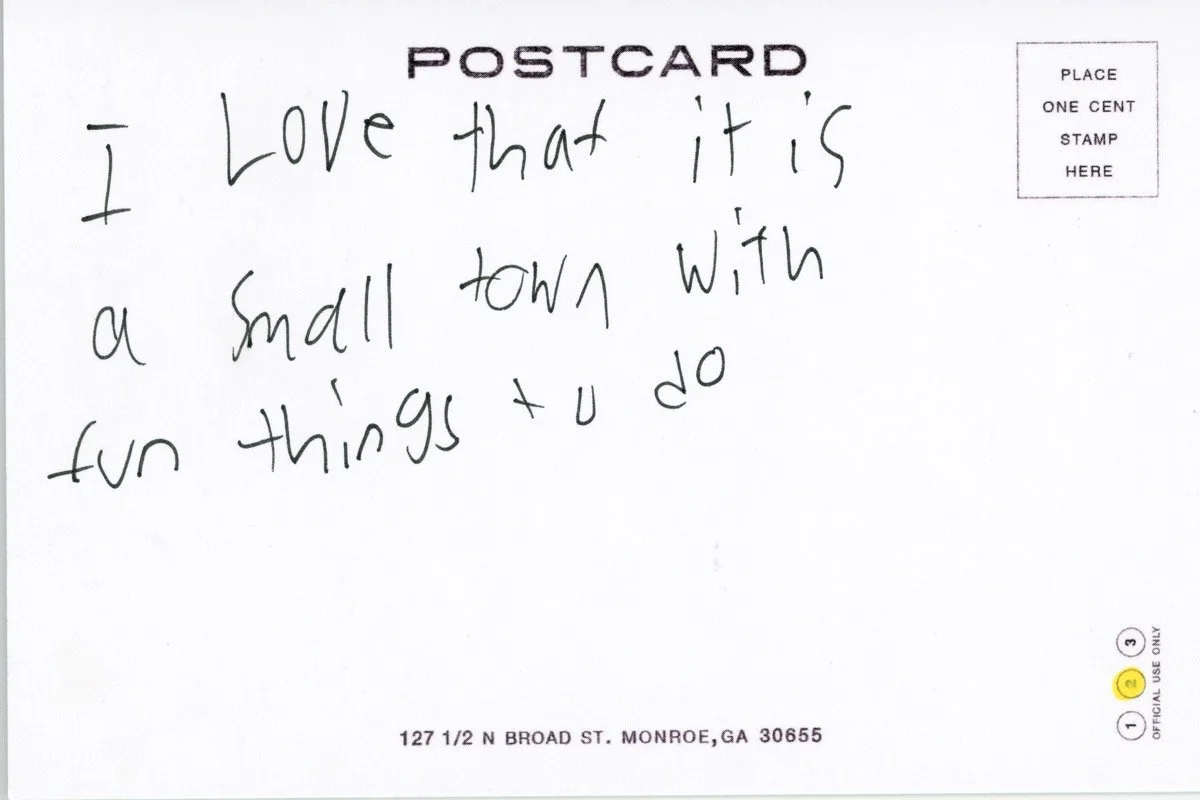 POSTCARD
PLACE
ONE CENT
STAMP
HERE
I Love that it is
a small town with
fun things to do
127 1/2 N BROAD ST. MONROE, GA 30655
1 2 3
OFFICIAL USE ONLY